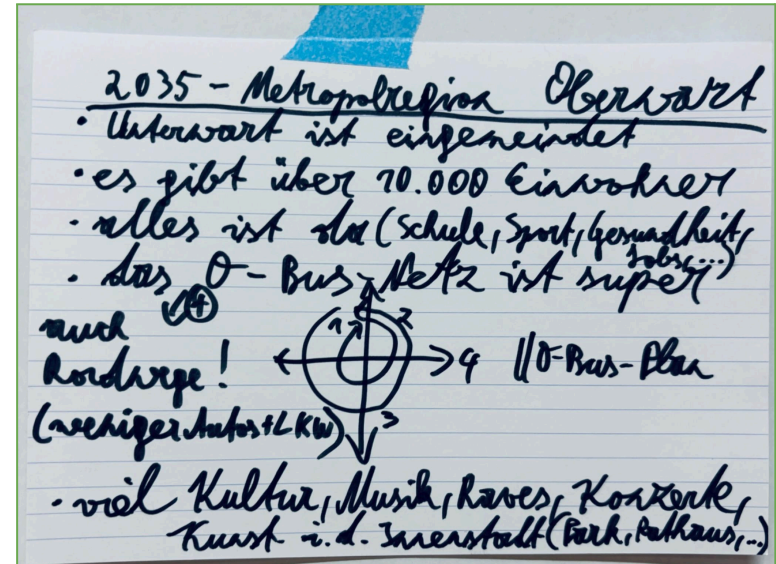 2035 - Metropolregion Oberwart
· Unterwart ist eingemeindet
· es gibt über 10.000 Einwohner
· alles ist da (Schule, Sport, Gesundheit,
Jobs, ...)
· das O-Bus-Netz ist super
4
auch
Radwege!
(weniger Autos + LKW)
1 2
3
4 || O-Bus-Plan
· viel Kultur, Musik, Raves, Konzerte,
Kunst i.d. Innenstadt (Park, Rathaus, ...)